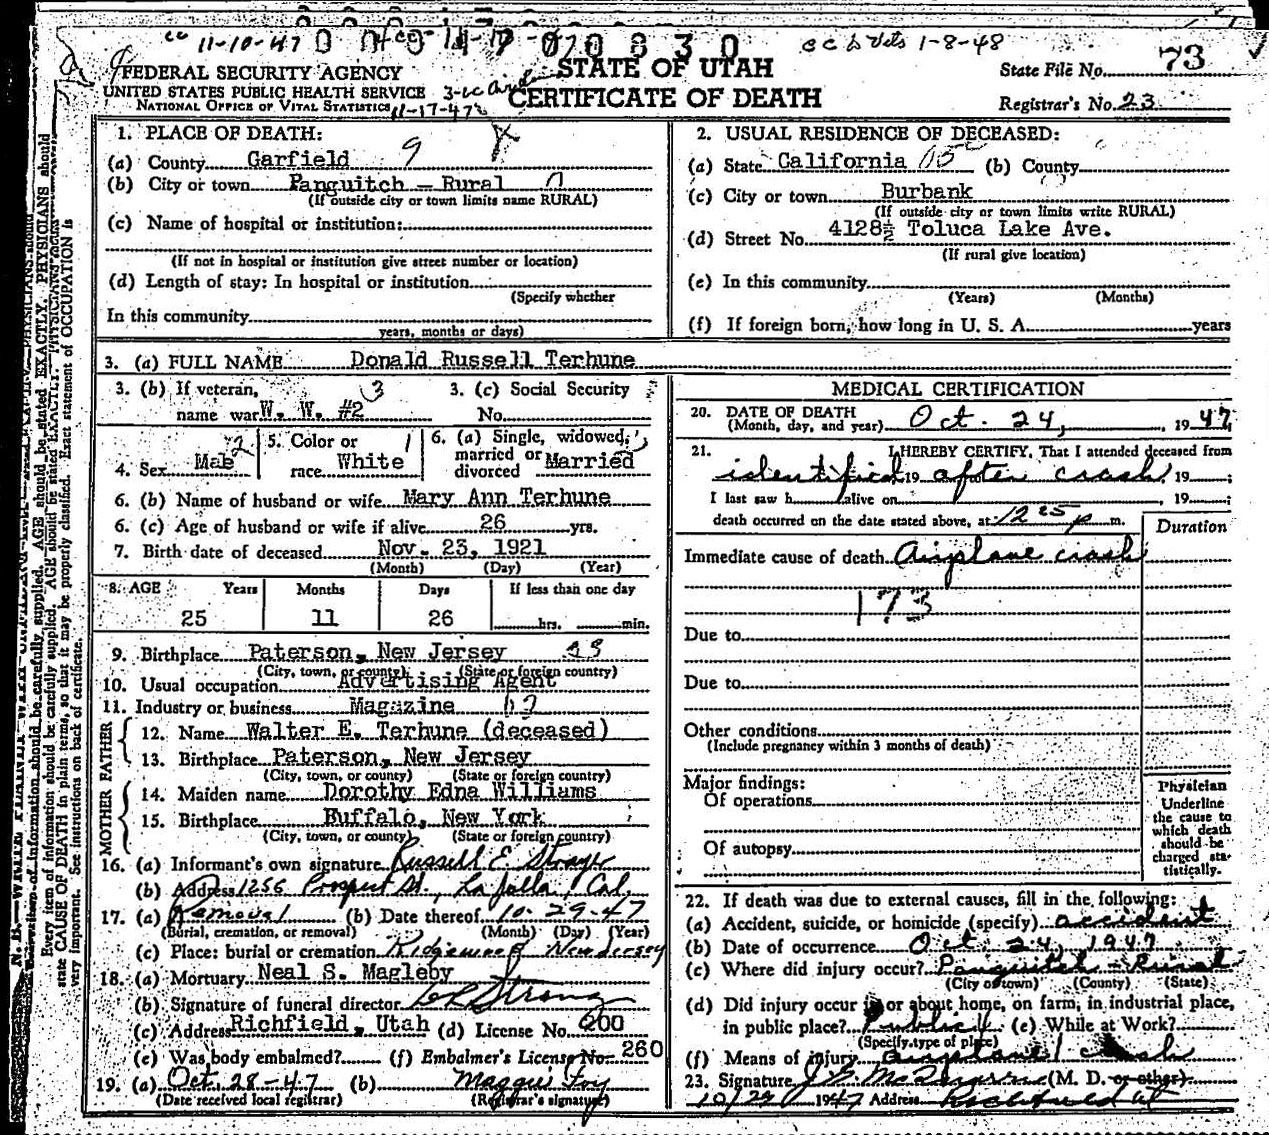 cc 11-10-47
c c to Vets 1-8-48
FEDERAL SECURITY AGENCY
UNITED STATES PUBLIC HEALTH SERVICE
NATIONAL OFFICE OF VITAL STATISTICS
11-17-47
STATE OF UTAH
CERTIFICATE OF DEATH
State File No. 73
Registrar's No. 23
1. PLACE OF DEATH:
(a) County Garfield 9
(b) City or town Panguitch - Rural 0
(If outside city or town limits name RURAL)
(c) Name of hospital or institution:
(If not in hospital or institution give street number or location)
(d) Length of stay: In hospital or institution
(Specify whether
In this community
years, months or days)
2. USUAL RESIDENCE OF DECEASED:
(a) State California (b) County
(c) City or town Burbank
(If outside city or town limits write RURAL)
(d) Street No. 4128½ Toluca Lake Ave.
(If rural give location)
(e) In this community
(Years) (Months)
(f) If foreign born, how long in U. S. A. years
3. (a) FULL NAME Donald Russell Terhune
3. (b) If veteran, 3
name war W. W. #2
3. (c) Social Security
No.
4. Sex Male 2
5. Color or 1
race White
6. (a) Single, widowed,
married or
divorced Married
6. (b) Name of husband or wife Mary Ann Terhune
6. (c) Age of husband or wife if alive 26 yrs.
7. Birth date of deceased Nov. 23, 1921
(Month) (Day) (Year)
8. AGE Years Months Days If less than one day
25 11 26 hrs. min.
9. Birthplace Paterson, New Jersey
(City, town, or county) (State or foreign country)
10. Usual occupation Advertising Agent
11. Industry or business Magazine
FATHER
12. Name Walter E. Terhune (deceased)
13. Birthplace Paterson, New Jersey
(City, town, or county) (State or foreign country)
MOTHER
14. Maiden name Dorothy Edna Williams
15. Birthplace Buffalo, New York
(City, town, or county) (State or foreign country)
16. (a) Informant's own signature Russell E.
(b) Address 1256 Prospect St., La Jolla, Cal.
17. (a) Removal (b) Date thereof 10-29-47
(Burial, cremation, or removal) (Month) (Day) (Year)
(c) Place: burial or cremation Ridgewood New Jersey
18. (a) Mortuary Neal S. Magleby
(b) Signature of funeral director Strong
(c) Address Richfield, Utah (d) License No. 200
(e) Was body embalmed? (f) Embalmer's License No. 260
19. (a) Oct. 28-47 (b) Maggie Foy
(Date received local registrar) (Registrar's signature)
MEDICAL CERTIFICATION
20. DATE OF DEATH
(Month, day, and year) Oct. 24, 1947
21. I HEREBY CERTIFY, That I attended deceased from
identified 19 after crash, 19 ;
I last saw h alive on , 19 ;
death occurred on the date stated above, at 12 25 p m.
Duration
Immediate cause of death Airplane crash
173
Due to
Due to
Other conditions
(Include pregnancy within 3 months of death)
Major findings:
Of operations
Of autopsy
Physician
Underline
the cause to
which death
should be
charged sta-
tistically.
22. If death was due to external causes, fill in the following:
(a) Accident, suicide, or homicide (specify) accident
(b) Date of occurrence Oct 24, 1947
(c) Where did injury occur? Panguitch - Rural
(City or town) (County) (State)
(d) Did injury occur in or about home, on farm, in industrial place,
in public place? Public (e) While at Work?
(Specify type of place)
(f) Means of injury airplane crash
23. Signature (M. D. or other)
1947 Address Richfield Ut